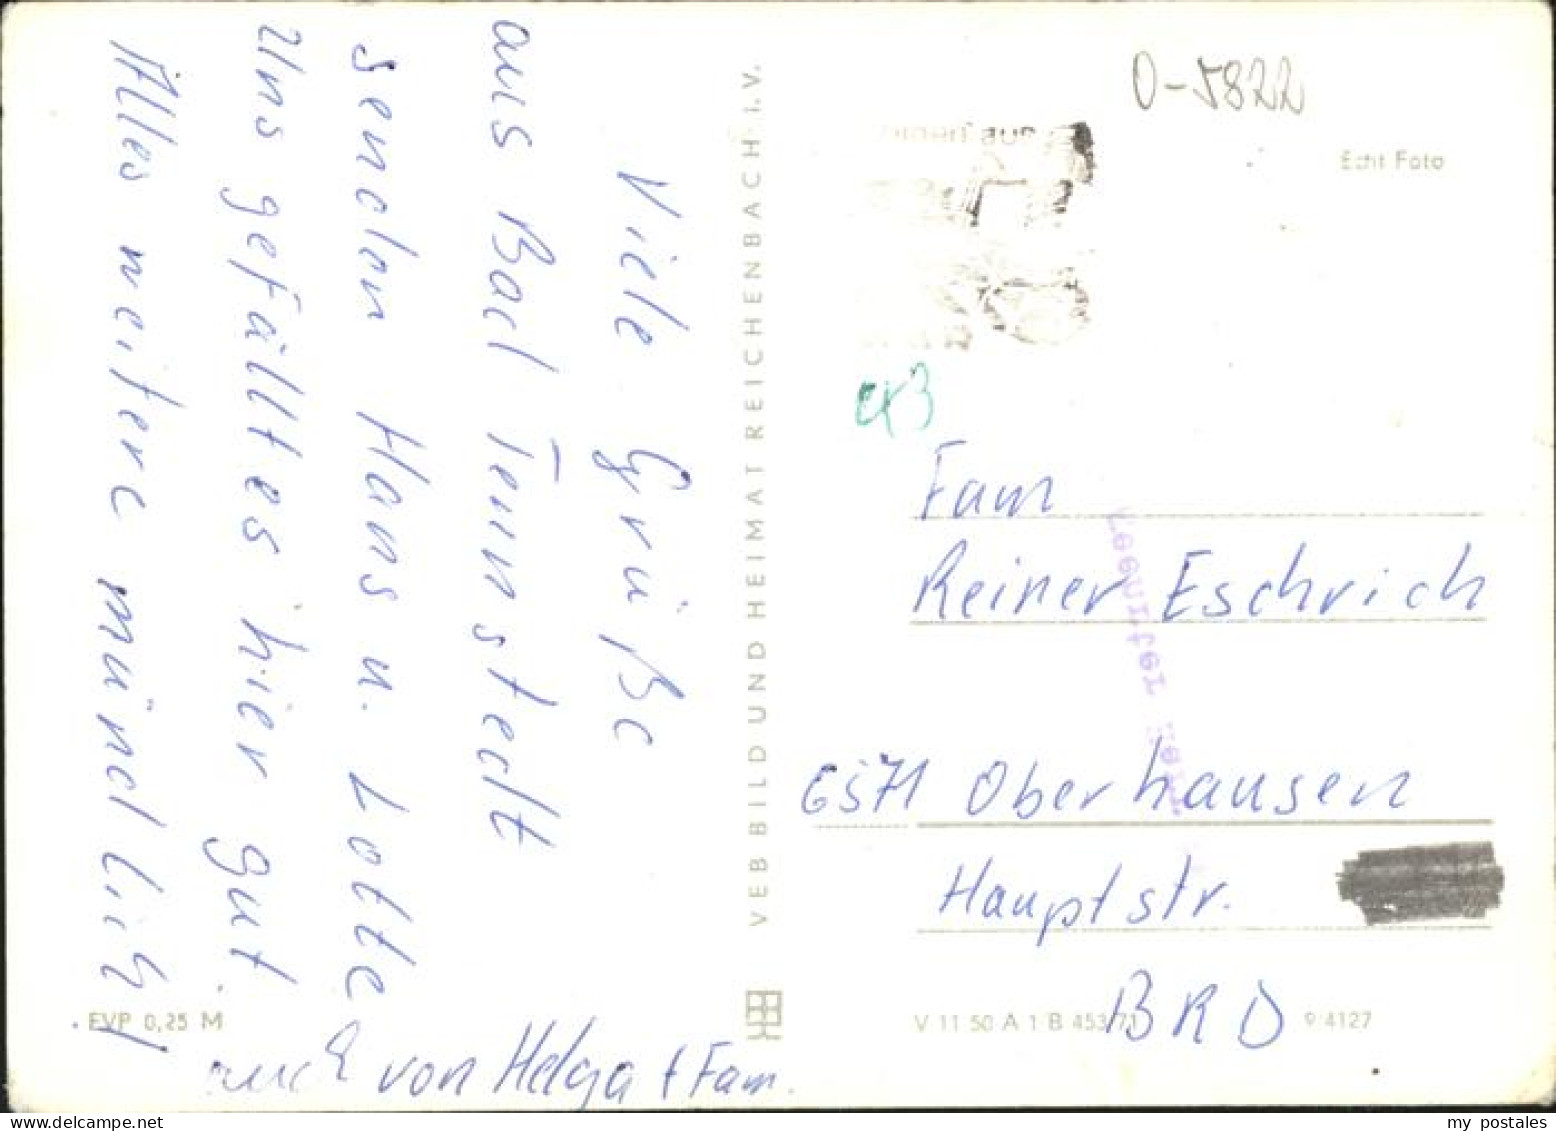 Viele Grüße
aus Bad Tennstedt
senden Hans u. Lotte
Uns gefällt es hier gut.
Alles weitere mündlich!
auch von Helga + Fam.
VEB BILD UND HEIMAT REICHENBACH i. V.
EVP 0,25 M
O-5822
Echt Foto
Fam
Reiner Eschrich
6571 Oberhausen
Hauptstr.
BRD
V 11 50 A 1 B 453/71 9/4127
www.delcampe.net
my_postales